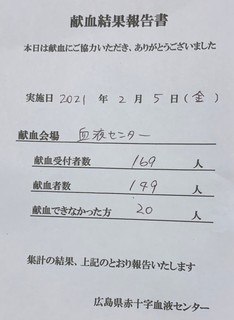 献血結果報告書
本日は献血にご協力いただき、ありがとうございました
実施日 2021 年 2 月 5 日 (金)
献血会場 血液センター
献血受付者数 169 人
献血者数 149 人
献血できなかった方 20 人
集計の結果、上記のとおり報告いたします
広島県赤十字血液センター